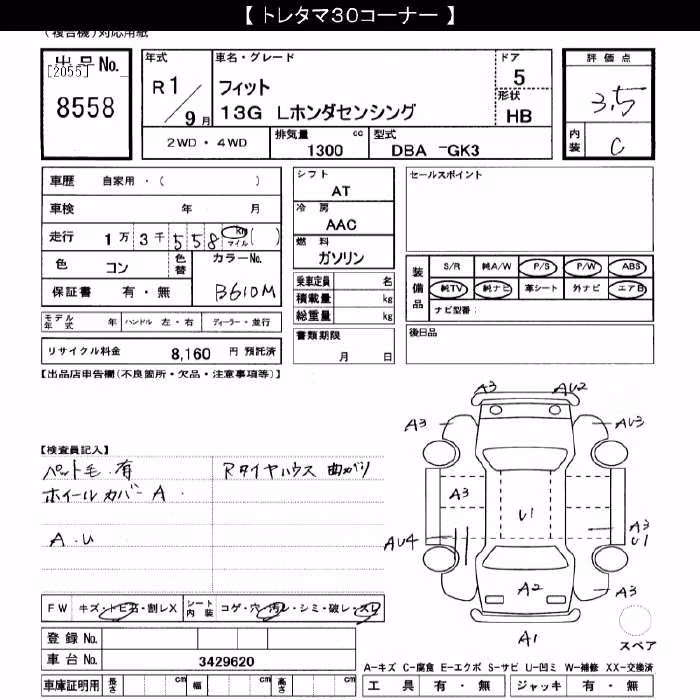 【 トレタマ30コーナー 】
(複合機)対応用紙
出品No.
[2055]
8558
年式
R 1 / 9 月
車名・グレード
フィット
13G Lホンダセンシング
ドア
5
形状
HB
2WD・4WD
排気量 cc
1300
型式
DBA -GK3
評価点
3.5
内装
C
車歴 自家用・( )
車検 年 月
走行 1万3千558 km マイル ( )
色 コン 色替 カラーNo.
保証書 有・無 B610M
モデル年式 年 ハンドル 左・右 ディーラー・並行
リサイクル料金 8,160 円 預託済
シフト
AT
冷房
AAC
燃料
ガソリン
乗車定員 名
積載量 kg
総重量 kg
書類期限
月 日
セールスポイント
装備品
S/R 純A/W P/S P/W ABS
純TV 純ナビ 革シート 外ナビ エアB
ナビ型番:
後日品
【出品店申告欄(不良箇所・欠品・注意事項等)】
【検査員記入】
ペット毛 有 Rタイヤハウス 曲がり
ホイールカバー A
A.U
A3 AU2
A3 AU3
A3
U1
AU4 A3
U1
A2 A3
A1
スペア
FW キズ・トビ石・割レX シート内装 コゲ・穴・汚レ・シミ・破レ・スレ
登録No.
車台No. 3429620
車庫証明用 長さ cm 幅 cm 高さ cm
A-キズ C-腐食 E-エクボ S-サビ U-凹ミ W-補修 XX-交換済
工具 有・無 ジャッキ 有・無